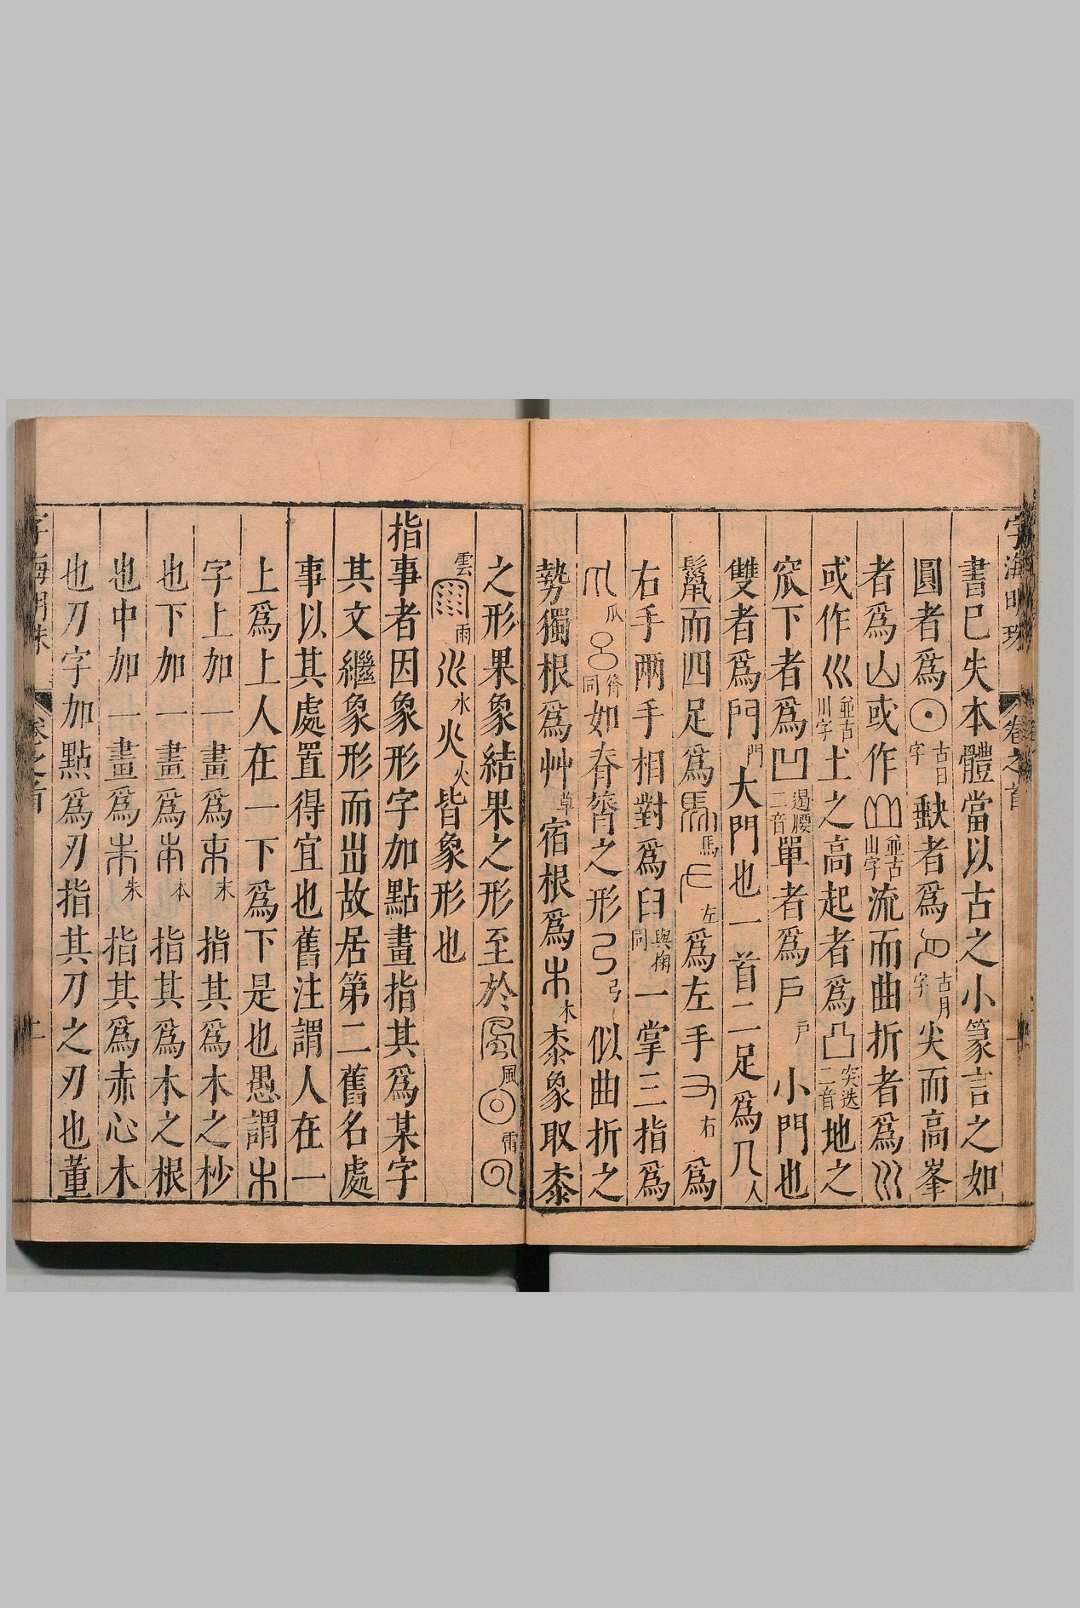 字海明珠 卷之首
書已失本體當以古之小篆言之如
圓者爲⊙古日字缺者爲古月字尖而高峯
者爲山或作並古山字流而曲折者爲巛
或作巛並古川字土之高起者爲凸突迭二音地之
窊下者爲凹遏腰二音單者爲戶戶小門也
雙者爲門門大門也一首二足爲几人
鬣而四足爲馬馬左爲左手右爲
右手兩手相對爲臼與掬同一掌三指爲
爪爪呂膂同如脊膂之形弓弓似曲折之
勢獨根爲艸草宿根爲木木桼象取桼
之形果象結果之形至於風風雷
雲雨雨水水火火皆象形也
指事者因象形字加點畫指其爲某字
其文繼象形而出故居第二舊名處
事以其處置得宜也舊注謂人在一
上爲上人在一下爲下是也愚謂木
字上加一畫爲末末指其爲木之杪
也下加一畫爲本本指其爲木之根
也中加一畫爲朱朱指其爲赤心木
也刀字加點爲刃指其刀之刃也董
字海明珠 卷之首 二